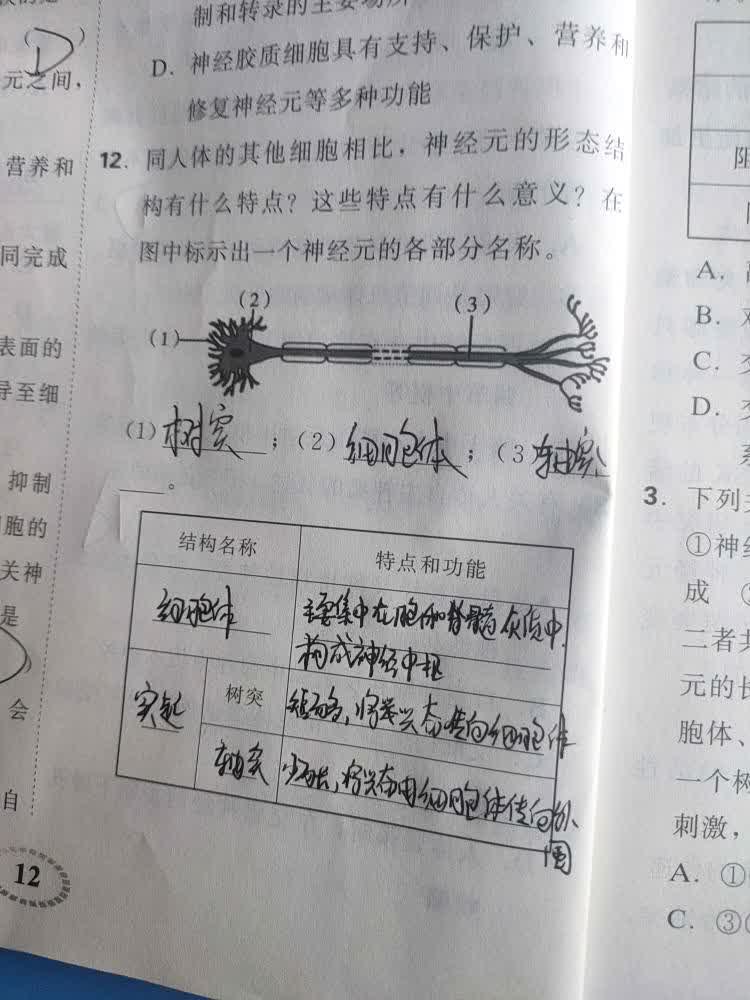 D
元之间,
营养和
同完成
表面的
导至细
抑制
胞的
关神
是
会
自
12
制和转录的主要场所
D. 神经胶质细胞具有支持、保护、营养和
修复神经元等多种功能
12. 同人体的其他细胞相比，神经元的形态结
构有什么特点？这些特点有什么意义？在
图中标示出一个神经元的各部分名称。
(2) (3)
(1)
(1) 树突 ；(2) 细胞体 ；(3 轴突
。
结构名称 特点和功能
细胞体 主要集中在脑和脊髓灰质中,
构成神经中枢
突起 树突 短而多,将兴奋传向细胞体
轴突 少而长,将兴奋由细胞体传向外
围
阻
A.
B.
C.
D.
3. 下列
①神经
成
二者共
元的长
胞体、
一个树
刺激,
A. ①
C. ③